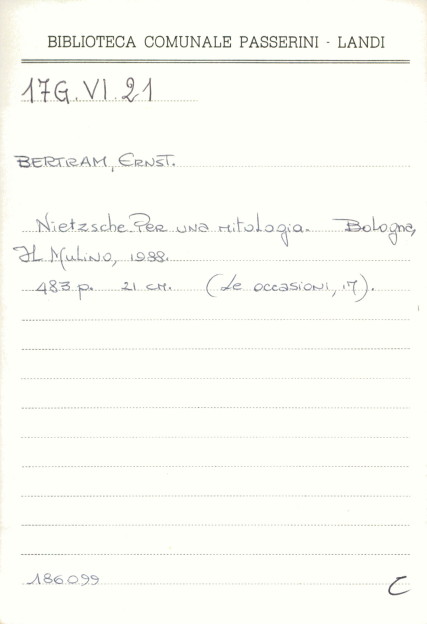 BIBLIOTECA COMUNALE PASSERINI - LANDI
17G.VI.21
BERTRAM, ERNST.
Nietzsche. Per una mitologia. Bologna,
Il Mulino, 1988.
483 p. 21 cm. (Le occasioni, 17).
186099
C